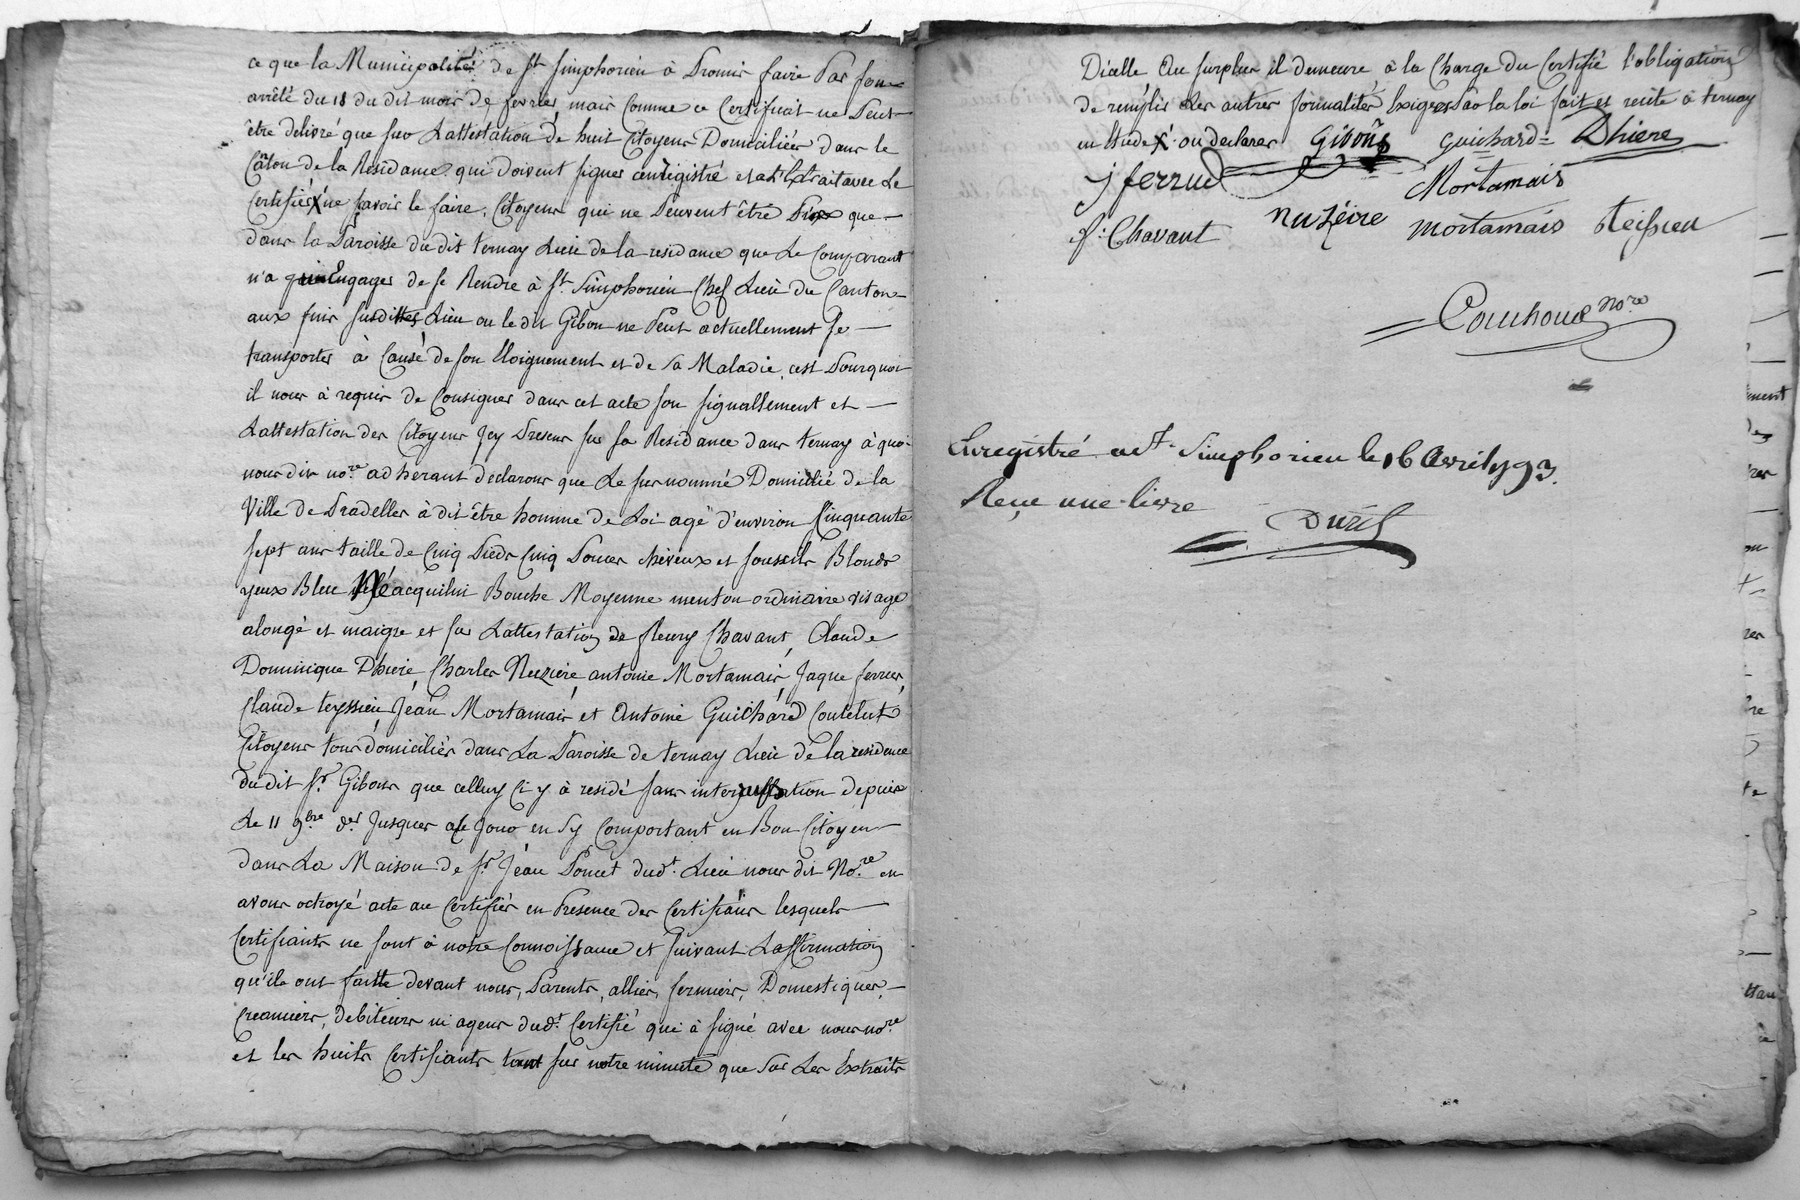 ce que la Municipalité de St Simphorien à Promis faire Par son
arrêté du 18 du dit mois de fevrier mais Comme ce Certificat ne Peut
être delivré que sur Lattestation de huit Citoyens Domiciliées dans le
Cânton de la Residance qui doivent signer cenregistré et Extrait avec Le
Certifié X ne savoir le faire, Citoyens qui ne Peuvent être Pris que
dans la Paroisse du dit ternay Lieu de la residance que Le Comparant
n'a Engager de se Rendre à St Simphorien Chef Lieu du Canton
aux fins susdittes Lieu ou le dit Gibon ne Peut actuellement se
transporter à Cause de son Eloignement et de sa Maladie, cest Pourquoi
il nous à requis de Consigner dans cet acte son signallement et
Lattestation des Citoyens Icy Presens sur sa Residance dans ternay à quoi
nous dis nore adherant declarons que Le surnommé Domicilié de la
Ville de Pradelles à dit être homme de Loi agé d'environ Cinquante
sept ans taille de Cinq Pieds Cinq Pouces cheveux et sourcils Blonds
yeux Bleu Né acquilin Bouche Moyenne menton ordinaire visage
alongé et maigre et sur Lattestation de fleury Chavant, Claude
Dominique Dhiere, Charles Nuziere, antoine Mortamais, Jaque ferrus,
Claude teyssieu, Jean Mortamais et Antoine Guichard Coutelut
Citoyens tous domiciliés dans La Paroisse de ternay Lieu de la residence
du dit sr Gibons que celluy Ci y à residé sans interruption depuis
Le 11 9bre der Jusques a Ce Jour en sy Comportant en Bon Citoyen
dans La Maison de sr Jean Poncet dudt. Lieu nous dit Nore en
avons octroyé acte au Certifiés en Presence des Certifians lesquels
Certifiants ne sont à notre Connoissance et suivant Laffirmation
qu'ils ont faitte devant nous, Parents, alliés, fermiers, Domestiques,
Creanciers, debiteurs ni agens dudt Certifié qui à signé avec nous nore
et les huits Certifiants tant sur notre minute que sur Les Extraits
Dicelle Au surplus il demeure à la Charge du Certifié l'obligation
de remplir Les autres formalités Exigées Par la loi fait et recité à ternay
en Etude X ou declarer Gibons Guichard Dhiere
j ferrud Mortamais
f: Chavant nuzéire mortamais teissieu
Couhoud nore
Enregistré a st Simphorien le 16 Avril 1793.
Reçu une livre
Durel